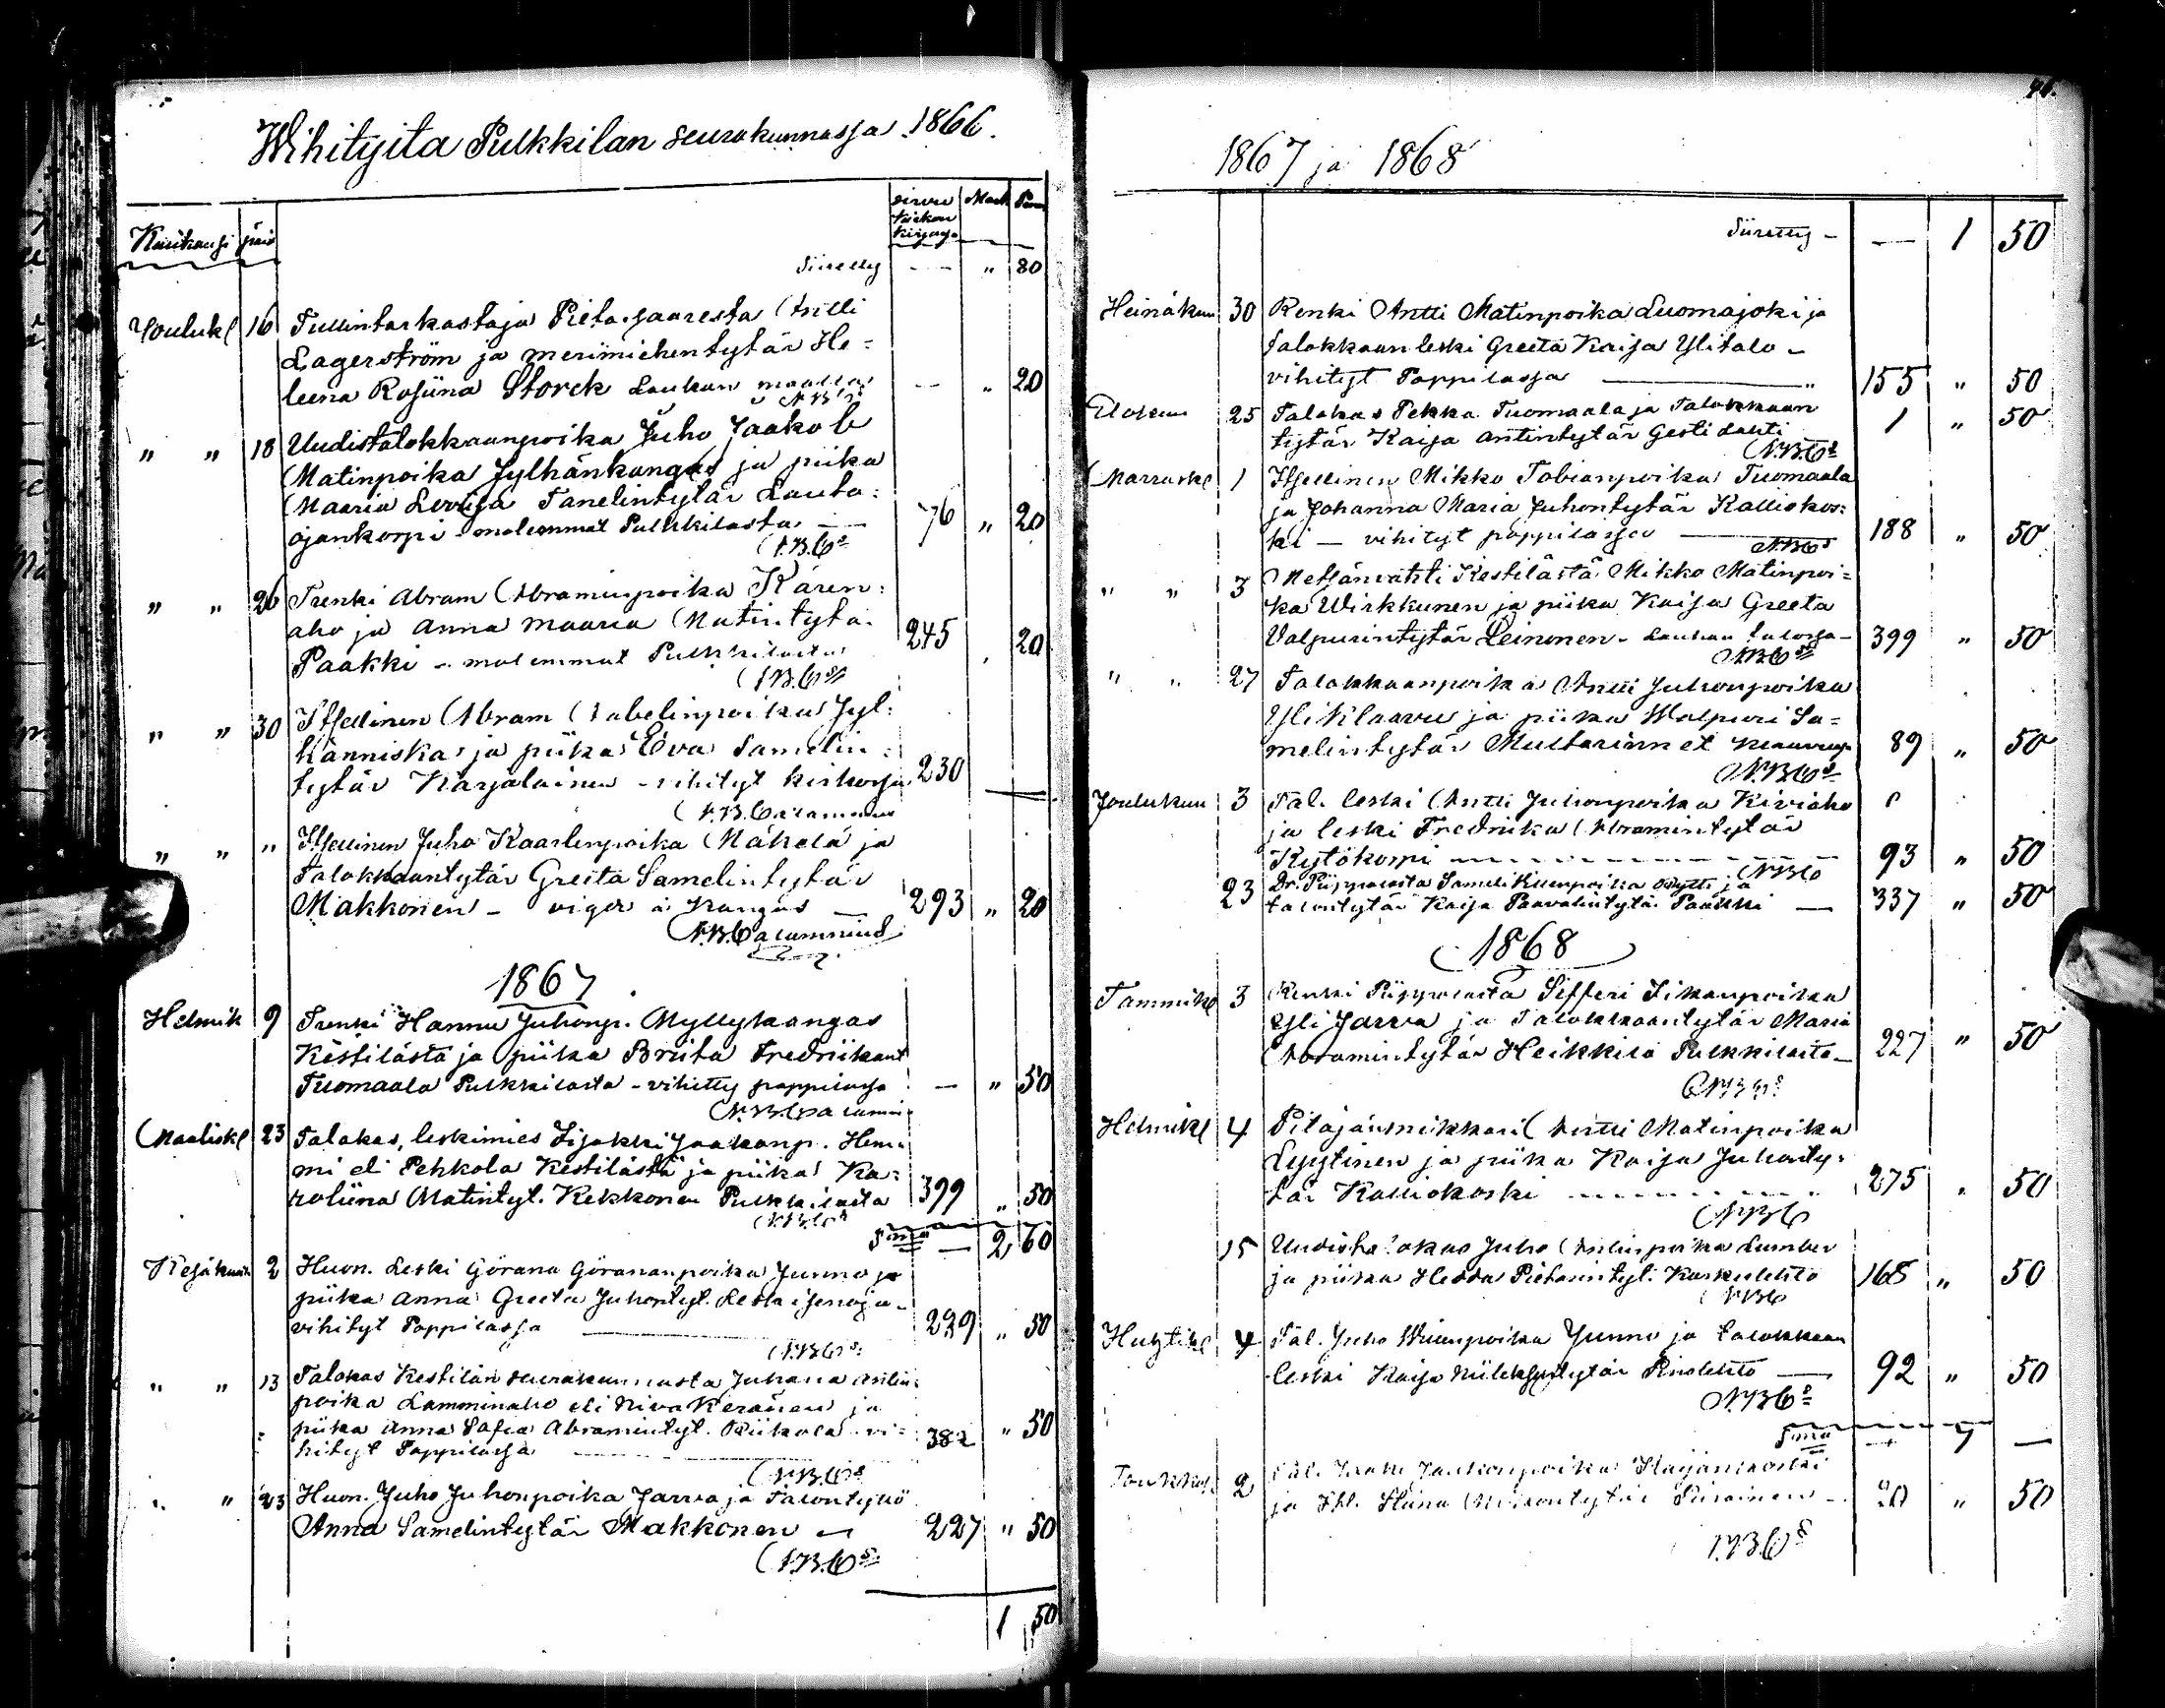 Wihityitä Pulkkilan seurakunnassa 1866.
Kuukausi päiv sivu kirkon kirjassa Mark Penn
Siiretty — „ 80
Jouluk 16 Tullintarkastaja Pietarsaaresta Antti
Lagerström ja merimiehentytär He=
leena Rosiina Storck Laukan maalla — „ 20
„ „ 18 Uudistalokkaanpoika Juho Jaakob
Matinpoika Jylhänkangas ja piika
Maaria Loviisa Tanelintytär Lauta=
ojankorpi – molemmat Pulkkilasta — 76 „ 20
„ „ 26 Trenki Abram Abraminpoika Kären=
aho ja Anna Maaria Matintytä.
Paakki – molemmat Pulkkilasta 245 20
„ „ 30 Itsellinen Abram Aabelinpoika Jyl=
hänniska ja piika Eva Samelin=
tytär Karjalainen – vihityt kirkossa 230
„ „ „ Itsellinen Juho Kaarlenpoika Mäkelä ja
Talokkaantytär Greita Samelintytär
Makkonen – vigor à Kangas — 293 „ 20
1867
Helmik 9 Trenki Hannu Juhonp. Myllykangas
Kestilästä ja piika Briita Fredriikant
Tuomaala Pulkkilasta – vihitty pappilassa — „ 50
Maalisk 23 Talokas, leskimies Iisakki Jaakonp. Hem=
mi eli Pehkola Kestilästä ja piika Ka=
roliina Matintyt. Kekkonen Pulkkilasta 399 „ 50
Sma — 2,60
Kesäkuu 2 Huon. Leski Görana Göranan poika Junno ja
piika Anna Greeta Juhontyt.
vihityt Pappilassa — 229 „ 50
„ „ 13 Talokas Kestilän seurakunnasta Juhana Antin
poika Lamminaho eli Niva Keränen ja
piika Anna Sofia Abramintyt. Riikola vi=
hityt Pappilassa — 382 „ 50
„ „ 23 Huon. Juho Juhonpoika Jarva ja Talontyttö
Anna Samelintytär Makkonen — 227 „ 50
1 50
1867 ja 1868
Siiretty — — 1 50
Heinäkuu 30 Renki Antti Matinpoika Luomajoki ja
talokkaan leski Greeta Kaisa Ylitalo –
vihityt Pappilassa — 155 „ 50
Elokuu 25 Talokas Pekka Tuomaala ja Talokkaan
tytär Kaisa Antintytär Gesti Lahti 1 „ 50
Marrask 1 Itsellinen Mikko Tobianpoika Tuomaala
ja Johanna Maria Juhontytär Kalliokos=
ki — vihityt pappilassa — 188 „ 50
„ „ 3 Metsänvahti Kestilästä Mikko Matinpoi=
ka Wirkkunen ja piika Kaisa Greeta
Valpurintytär Leinonen – Laukan talossa – 399 „ 50
„ „ 27 Talokkaanpoika Antti Juhonpoika
Yliklaavu ja piika Walpuri Sa=
melintytär Mustarinnet 89 „ 50
Joulukuu 3 Tal. leski Antti Juhonpoika Kiviaho
ja leski Fredrika Abramintytär
Kytökorpi — 93 „ 50
23 Dr. Piippolasta Kyttä ja
talontytär Kaisa Paavalintytär Paakki — 337 „ 50
1868
Tammik 3 Renki Piippolasta Sefferi Iikanpoika
Yli Jarva ja Talokkaantytär Maria
Abramintytär Heikkilä Pulkkilasta – 227 „ 50
Helmik 4 Pitäjännikkari Antti Matinpoika
Lyytinen ja piika Kaisa Juhonty=
tär Kalliokoski 275 „ 50
15 Uudistalokas Juho Antinpoika Lumber
ja piika Hedda Pietarintyt. Koskulehto 165 „ 50
Huhtik 4 Tal. Juho Wiianpoika Junno ja talokkaan
leski Kaisa Piilehto — 92 „ 50
Sma — 7 —
Toukok 2 Jaakonpoika Harjunkoski
ja Itl. Stiina Piirainen – „ 50